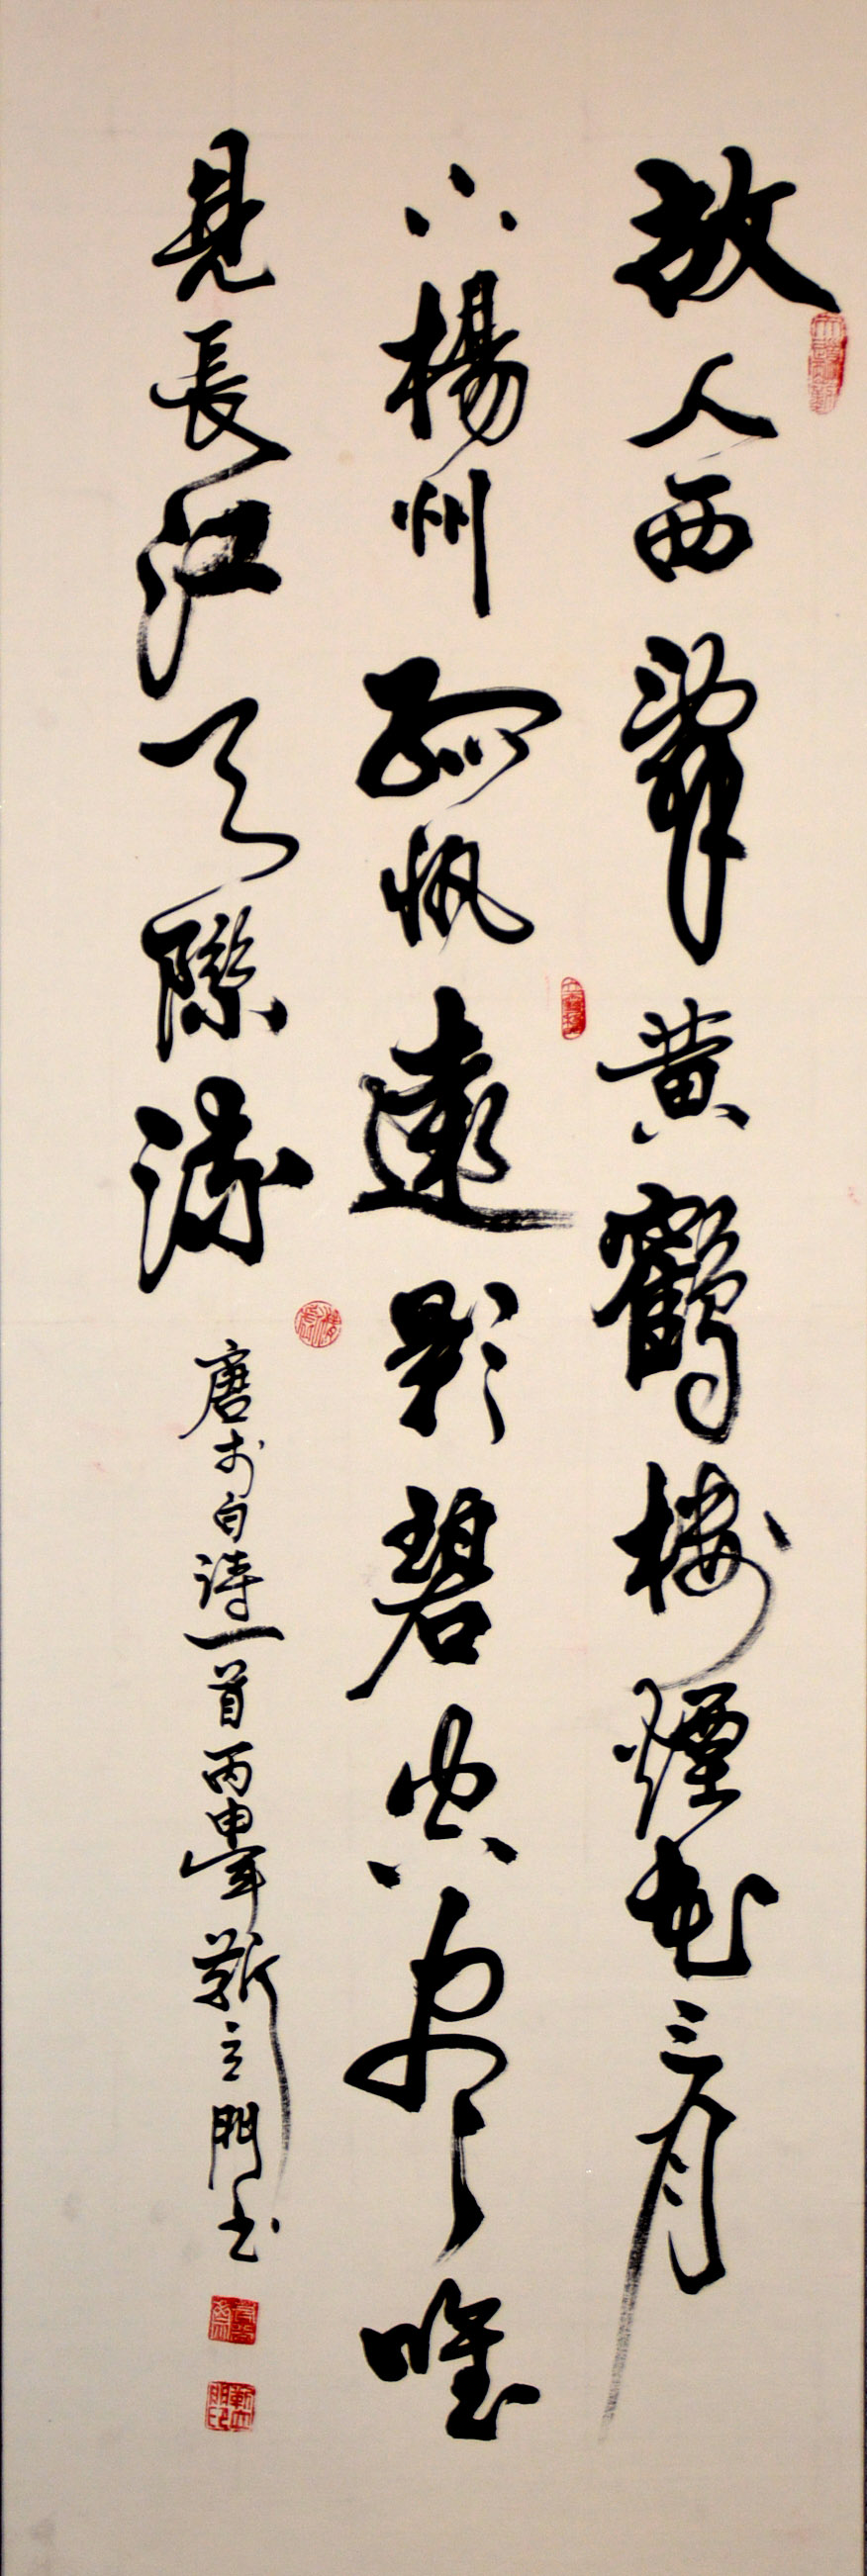 故人西辭黄鶴樓煙花三月
下楊州孤帆遠影碧空盡唯
見長江天際流
唐李白詩一首丙申年靳立書